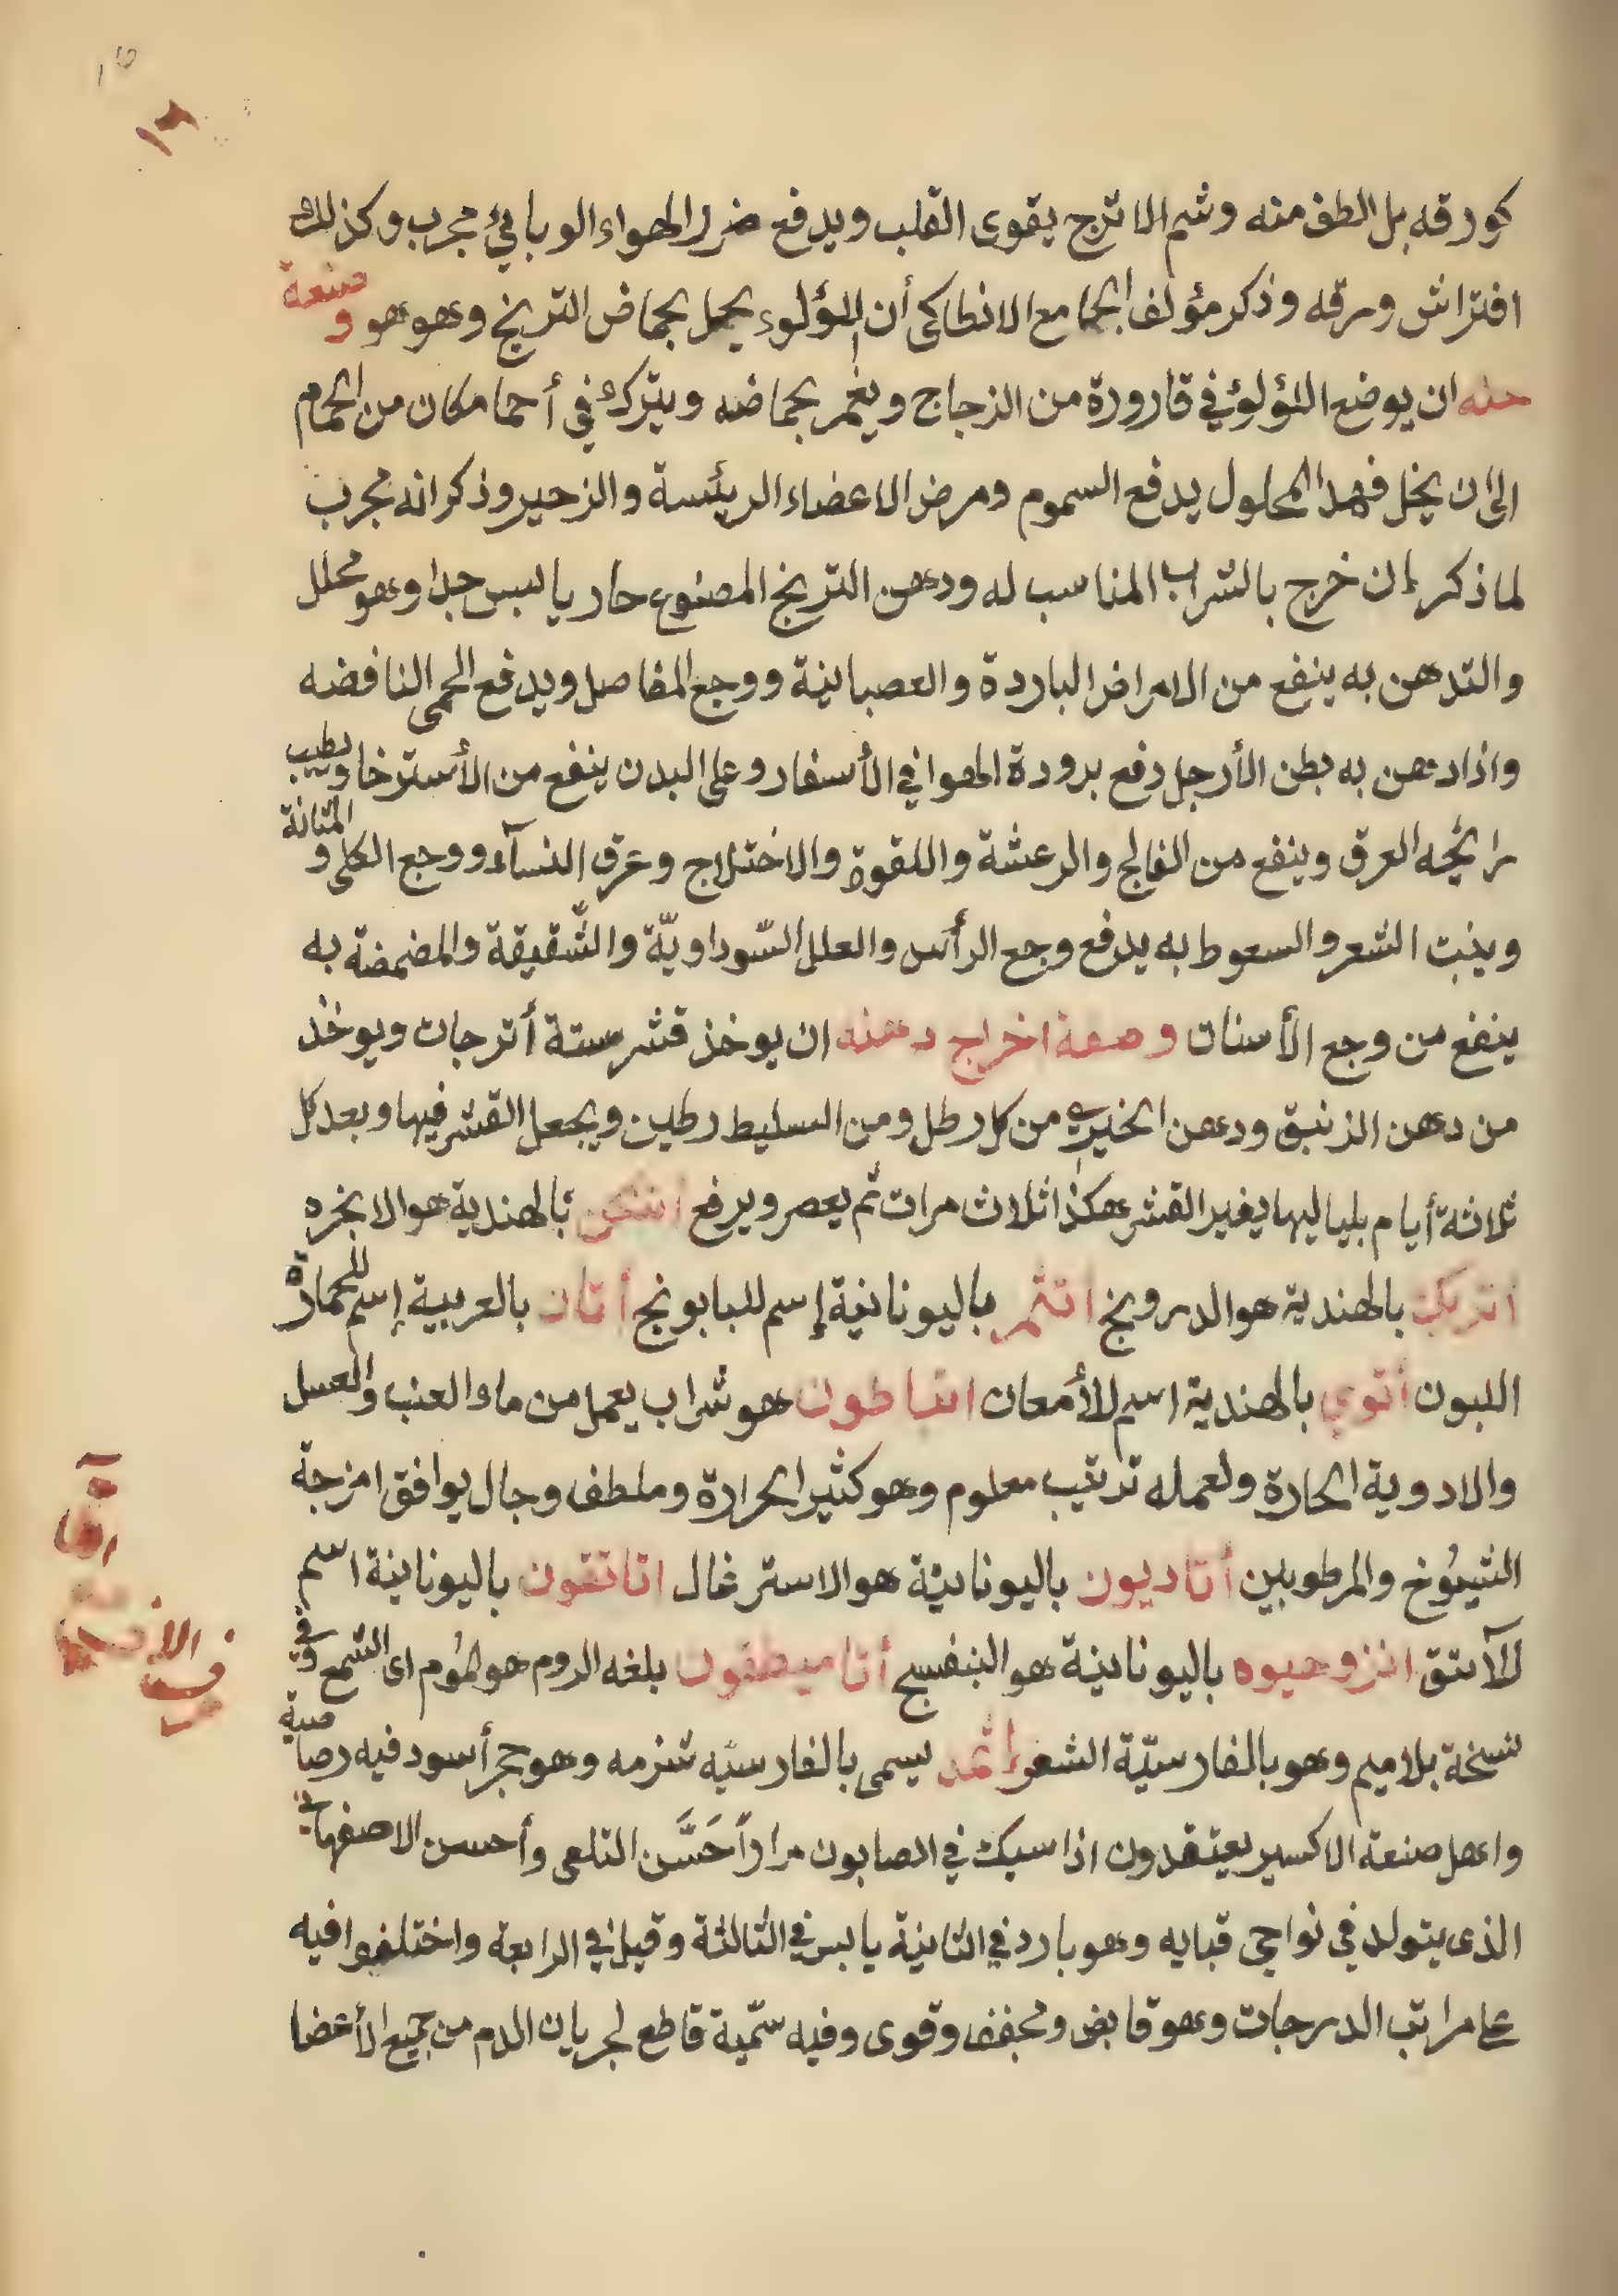 ١٥
١٢
كورقه بل الطف منه وشم الاترج يقوى القلب ويدفع ضرر الهواء الوبائي مجرب وكذلك
افتراش ورقه وذكر مؤلف الجامع الانطاكى أن اللؤلوء يحل بحماض التريج وهو هو وصنعة
حله ان يوضع اللؤلؤ في قارورة من الزجاج ويغمر بحماضه ويترك في أحما مكان من الحمام
الى ان يخل فهذا المحلول يدفع السموم ومرض الاعضاء الريئسة والزحير وذكر انه مجرب
لما ذكر إن خرج بالشراب المناسب له ودهن التريج المصنوع حار يابس جدا وهو محلل
والتدهن به ينفع من الامراض الباردة والعصبانية ووجع المفاصل ويدفع الحمى النافضه
واذا دهن به بطن الأرجل دفع برودة الهوا في الأسفار وعلى البدن ينفع من الأسترخا ويطيب
رائحه العرق وينفع من الفالج والرعشة واللقوة والاختلاج وعرق النسآء ووجع الكلى والمثانة
وينبت الشعر والسعوط به يدفع وجع الرأس والعلل السّوداويّة والشّقيقة والمضمضة به
ينفع من وجع الأسنان وصفة اخراج دهنه ان يوخذ قشر ستة أترجات ويوخذ
من دهن الزنبق ودهن الخيري من كل رطل ومن السليط رطلين ويجعل القشر فيها وبعد كل
ثلاثة أيام بلياليها يغير القشر هكذا ثلاث مرات ثم يعصر ويرفع بالهندية هو الابخره
اتريك بالهندية هو الدرونج اتثمر باليونانية إسم للبابونج أتان بالعربية إسم للحمارة
اللبون أتوي بالهندية اسم للأمعان اتناطون هو شراب يعمل من ماء العنب والعسل
والادوية الحارة ولعمله ترتيب معلوم وهو كثير الحرارة وملطف وجال يوافق امزجة
الشيُوخ والمرطوبين أتاديون باليونانيّة هو الاسترغال اتاتقون باليونانية اسم
للآتتق اتزوحيوه باليونانيّة هو البنفسج أتاميطقون بلغه الروم هو لمُوم اى الشمع وفي
نسخة بلا ميم وهو بالفارسيّة الشعر إثمد يسمى بالفارسيّه شزمه وهو حجر أسود فيه رصاصية
واهل صنعة الاكسير يعتقدون اذا سبك في الصابون مراراً حَسَّن القلعى وأحسن الاصفهاني
الذى يتولد في نواحى قبايه وهو بارد في الثانية يابس في الثالثة وقيل في الرابعة واختلفوا فيه
على مراتب الدرجات وهو قابض ومجفف وقوى وفيه سمّية قاطع لجريان الدم من جميع الأعضا